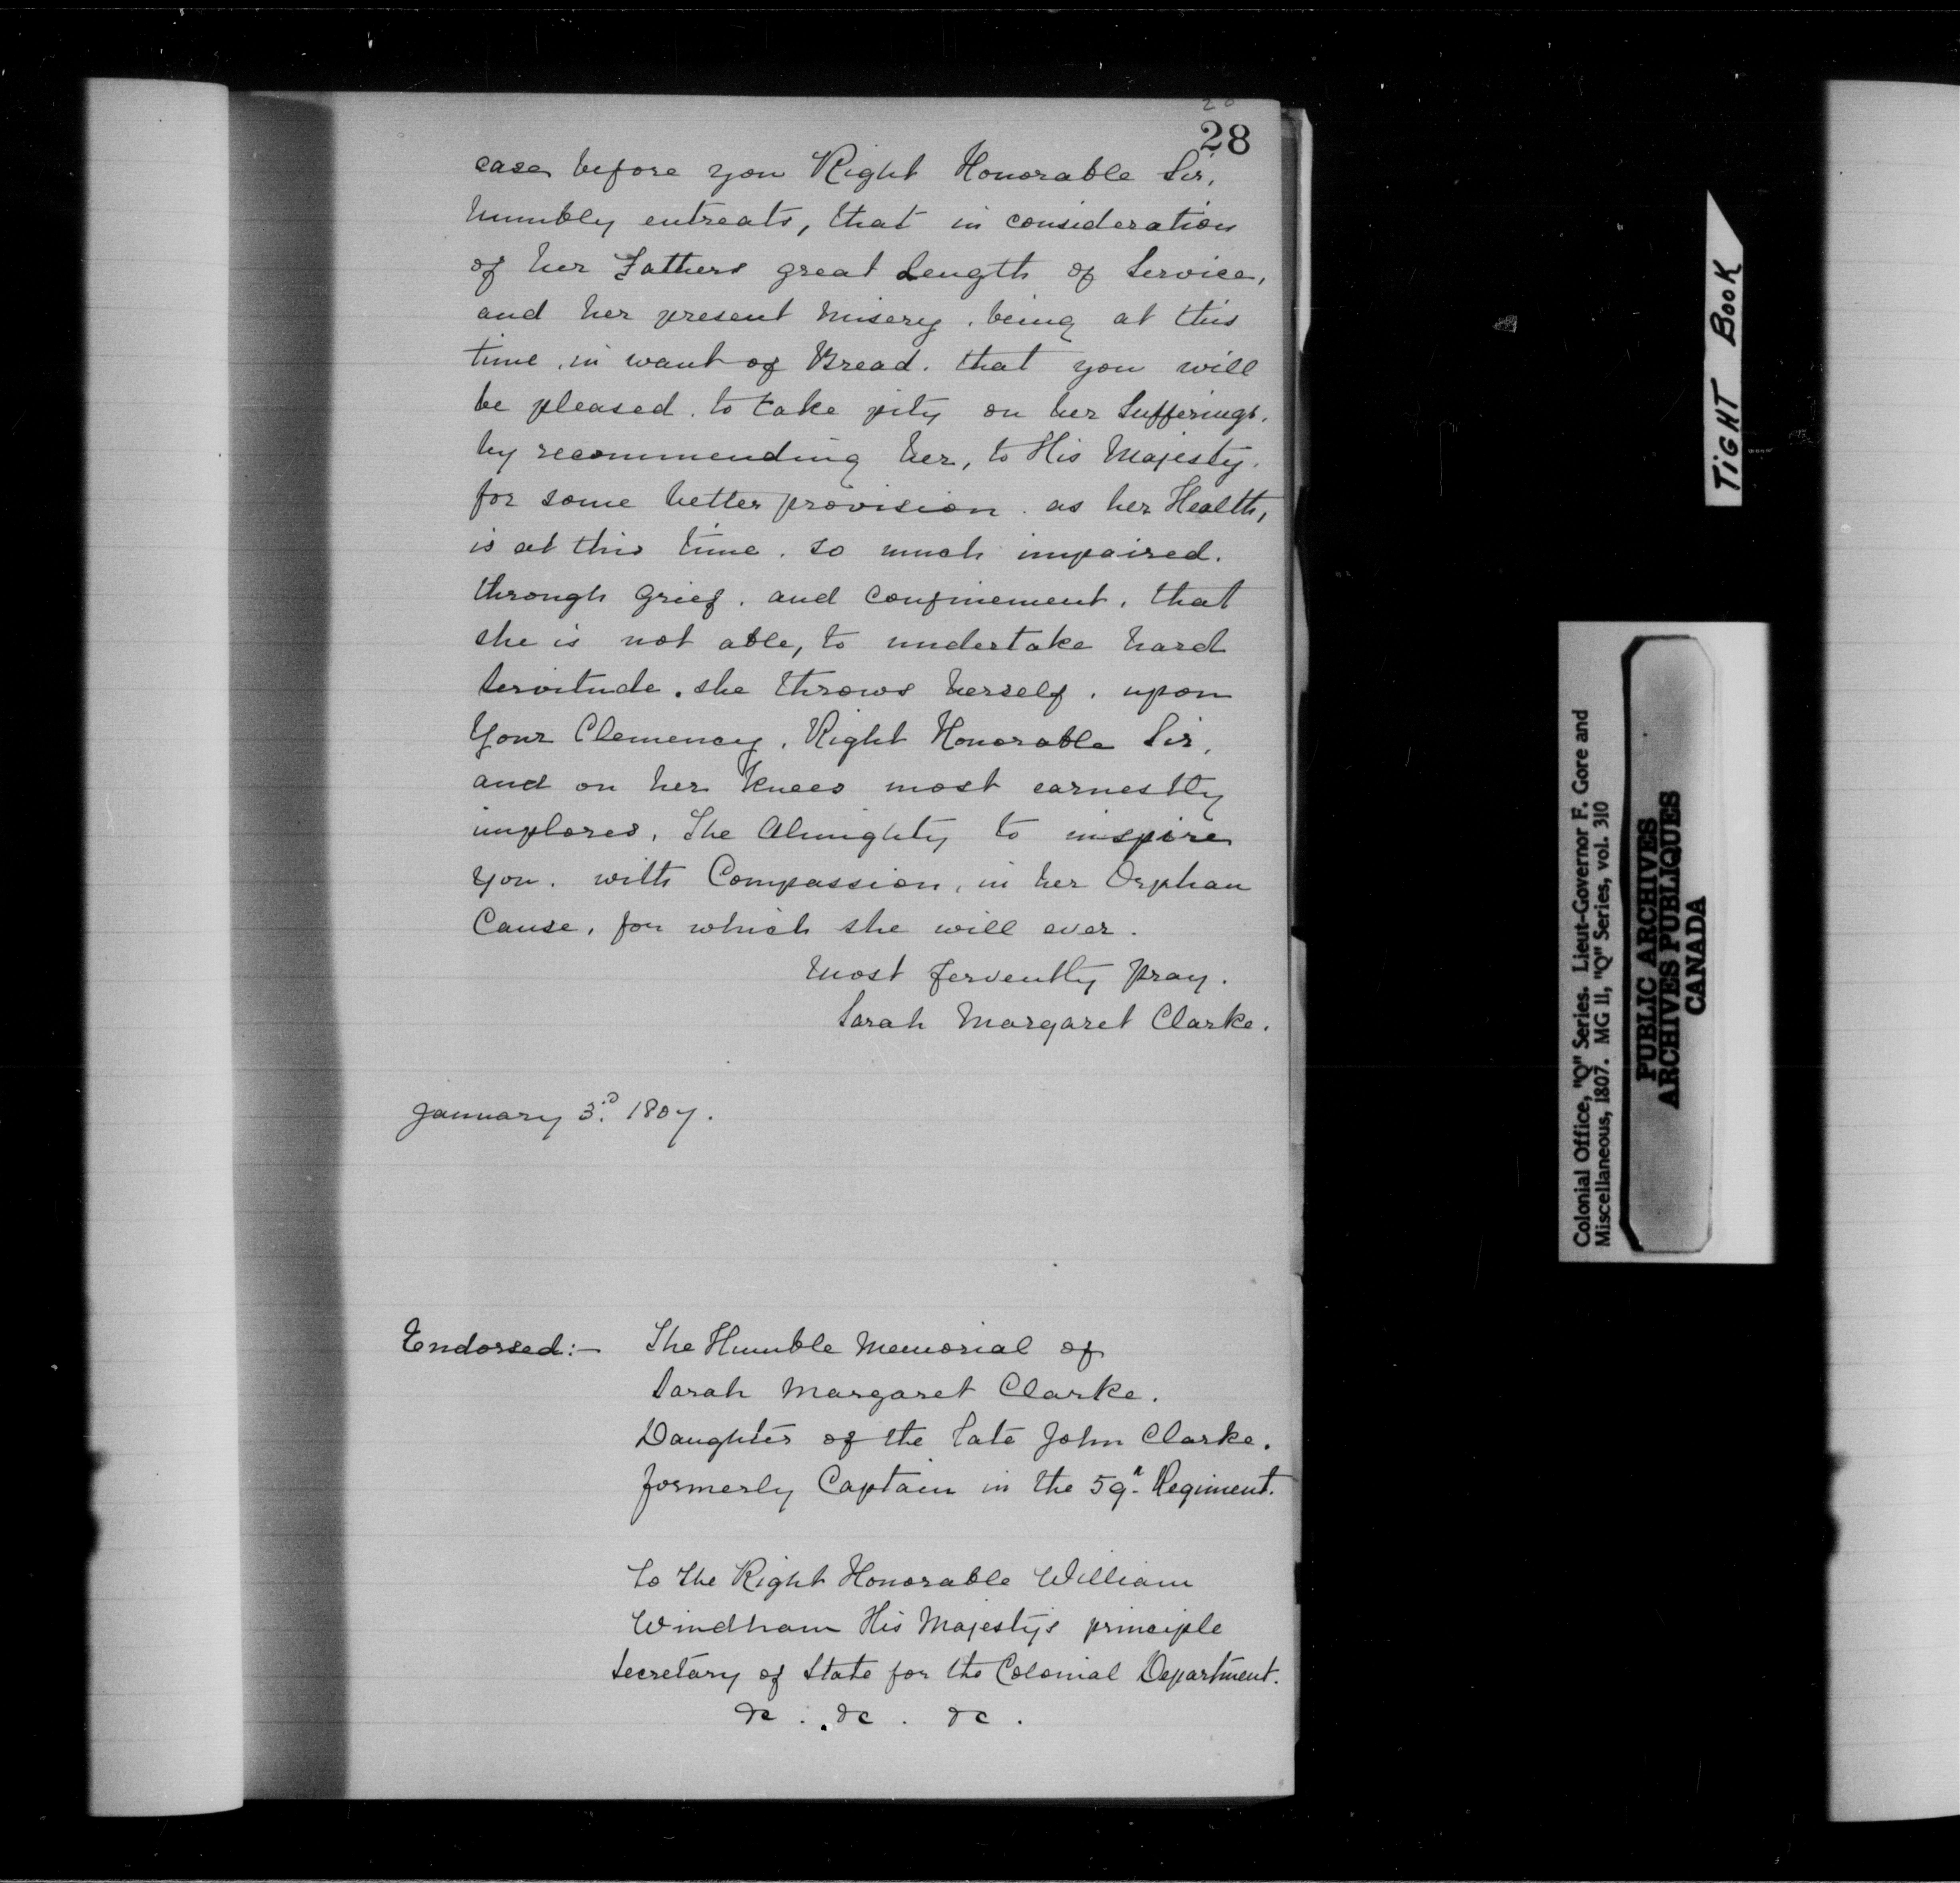 28
case before you Right Honorable Sir,
humbly entreats, that in consideration
of her Fathers great Length of Service,
and her present misery, being at this
time, in want of Bread. that you will
be pleased, to take pity on her Sufferings,
by recommending her, to His Majesty,
for some better provision. as her Health,
is at this time, so much impaired.
through Grief, and Confinement, that
she is not able, to undertake hard
Servitude. she throws herself, upon
Your Clemency, Right Honorable Sir,
and on her Knees most earnestly
implores, The Almighty to inspire
You. with Compassion, in her Orphan
Cause, for which she will ever.
most fervently Pray.
Sarah Margaret Clarke.
January 3.D 1807.
Endorsed:- The Humble Memorial of
Sarah Margaret Clarke.
Daughter of the late John Clarke.
formerly Captain in the 59. Regiment.
To the Right Honorable William
Windham His Majesty's principle
Secretary of State for the Colonial Department.
&c. &c. &c.
TIGHT BOOK
Colonial Office, "Q" Series. Lieut-Governor F. Gore and
Miscellaneous, 1807. MG 11, "Q" Series, vol. 310
PUBLIC ARCHIVES
ARCHIVES PUBLIQUES
CANADA